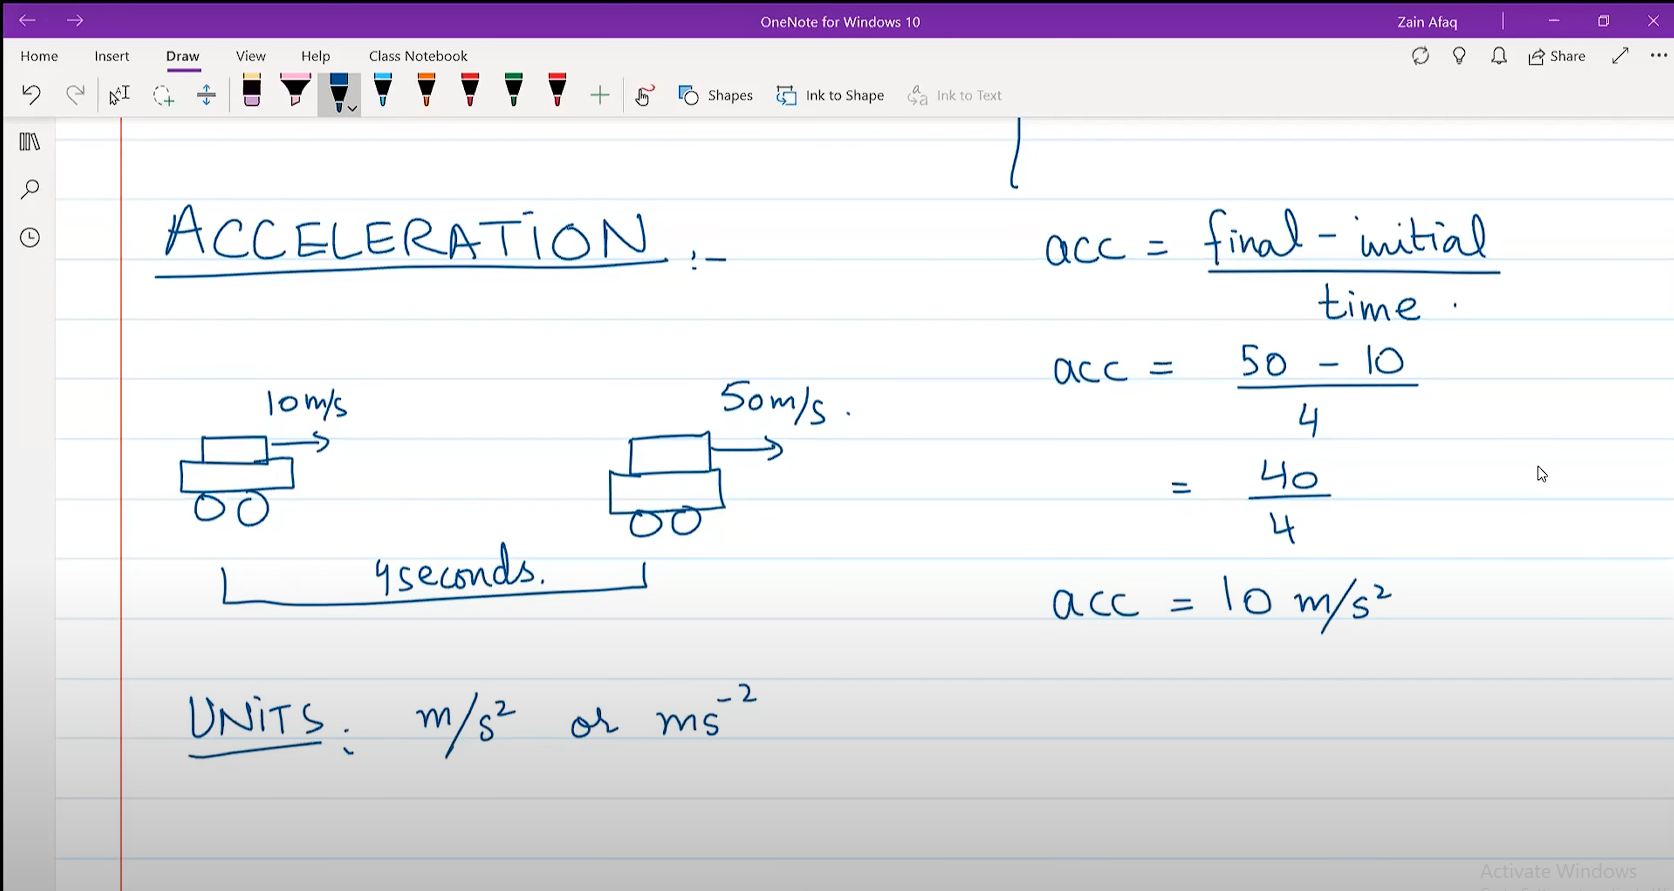 OneNote for Windows 10
Zain Afaq
Home Insert Draw View Help Class Notebook
Share
Shapes Ink to Shape Ink to Text
ACCELERATION :-
10m/s
50m/s.
4seconds.
UNITS: m/s² or ms⁻²
acc = final - initial
time.
acc = 50 - 10
4
= 40
4
acc = 10 m/s²
Activate Windows